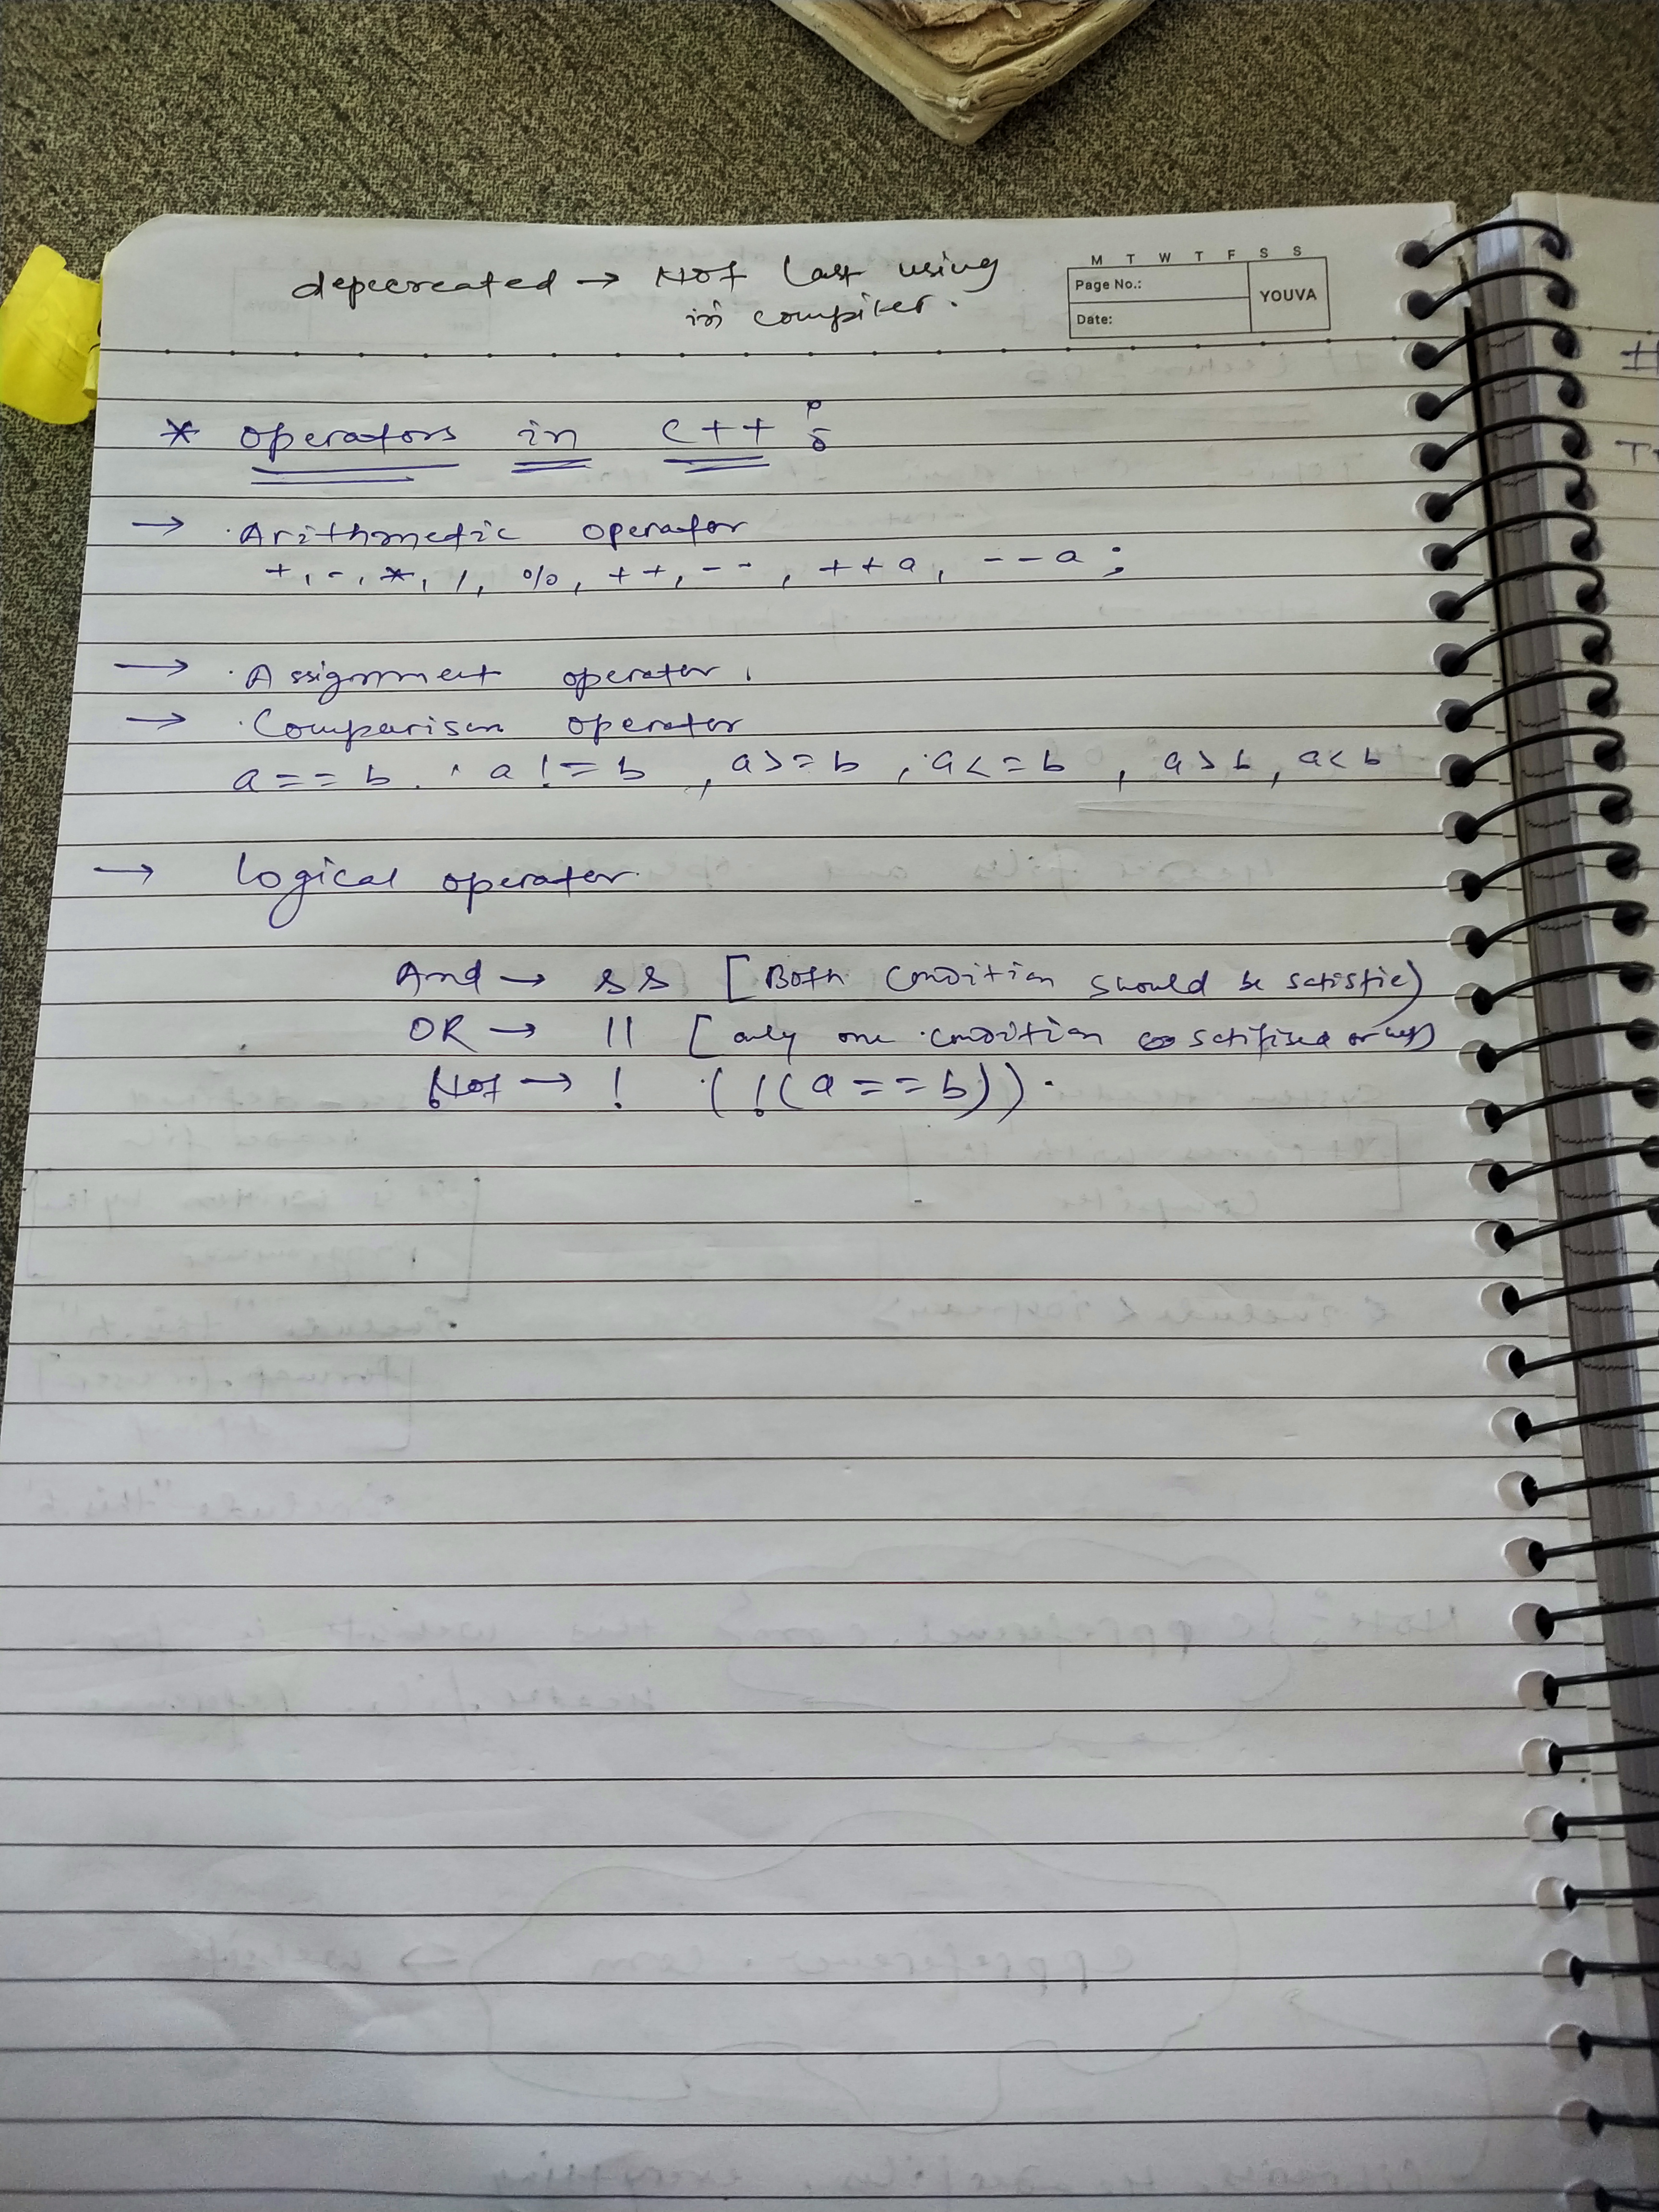 depecreated → Not Last using
in compiler.
M T W T F S S
Page No.:
YOUVA
Date:
* operators in C++ :
→ Arithmetic operator
+, -, *, /, %, ++, --, ++a, --a ;
→ Assignment operator,
→ Comparison operator
a == b, a != b, a>=b, a<=b, a>b, a<b
→ Logical operator.
And → && [Both condition should be satisfie)
OR → || [only one condition satifised or
Not → ! (!(a==b)).